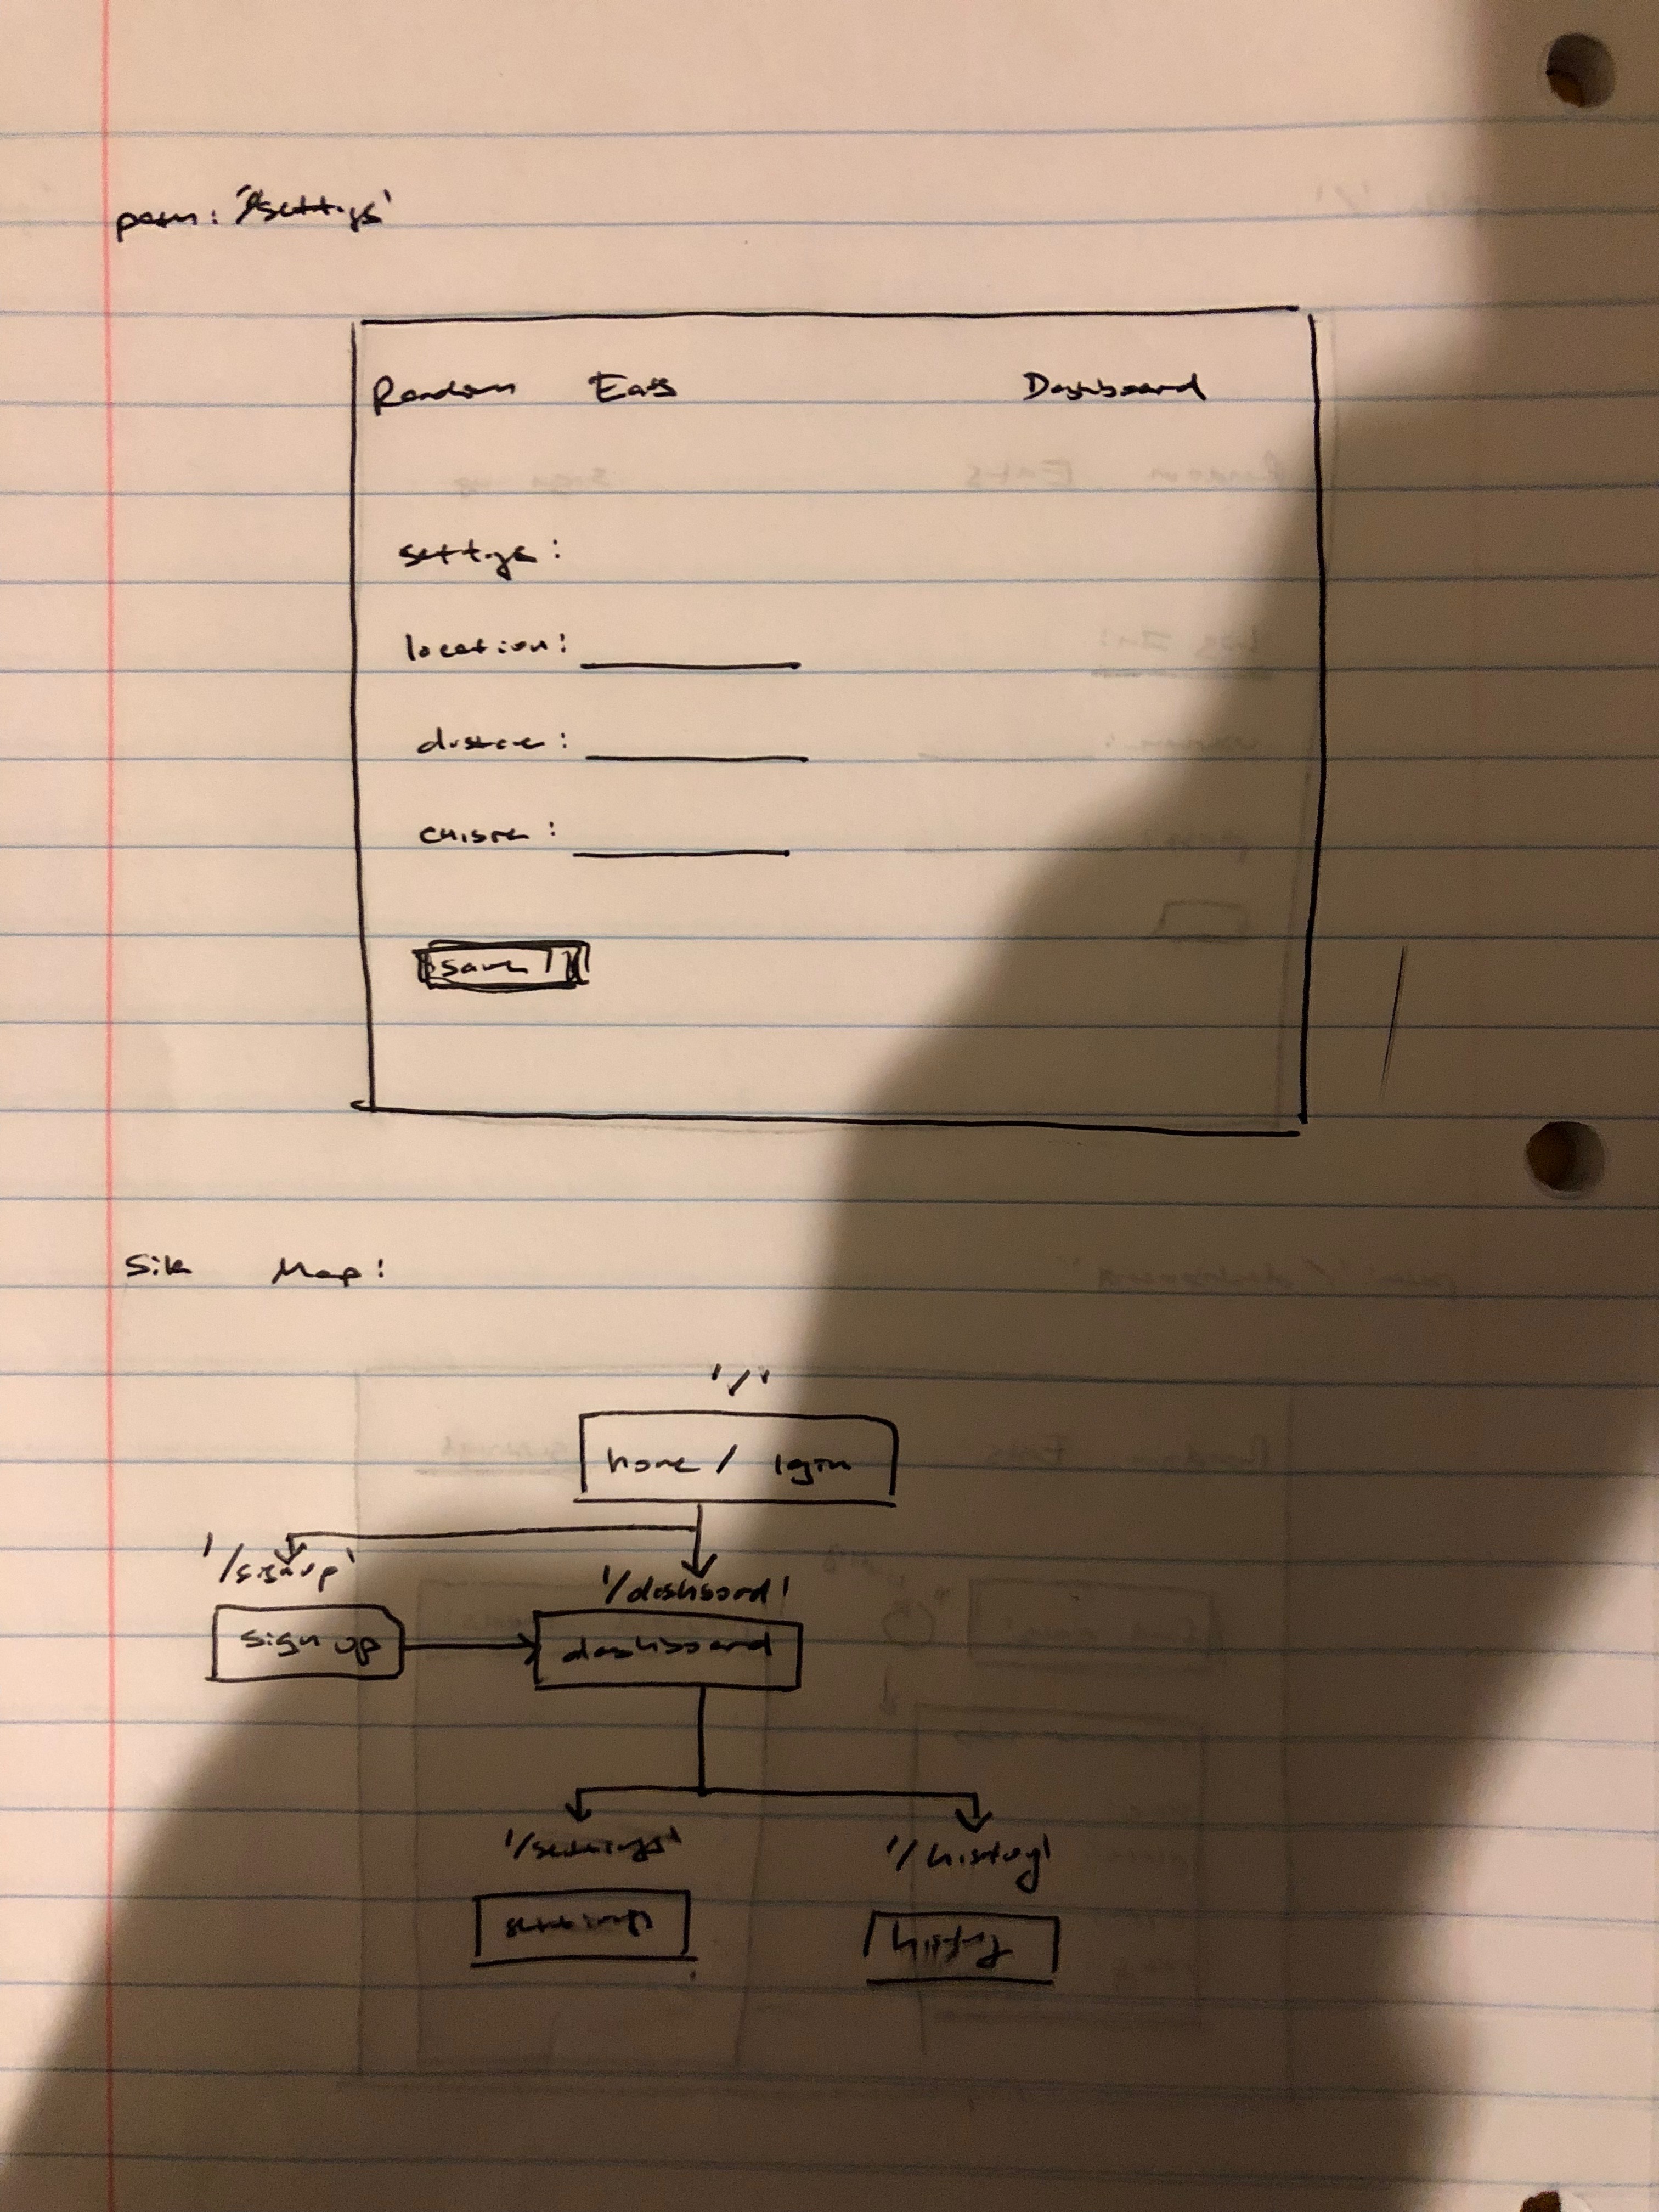 path: '/settings'
Random Eats Dashboard
settings:
location:
distance:
cuisine:
save
Site Map:
'/'
home / login
'/signup'
'/dashboard'
sign up
dashboard
'/settings'
'/history'
settings
history